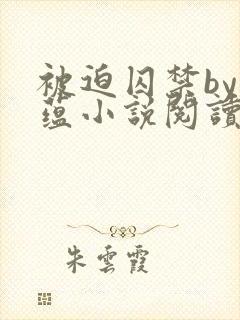 被迫囚禁by
蕴小說閱讀
朱雲霞